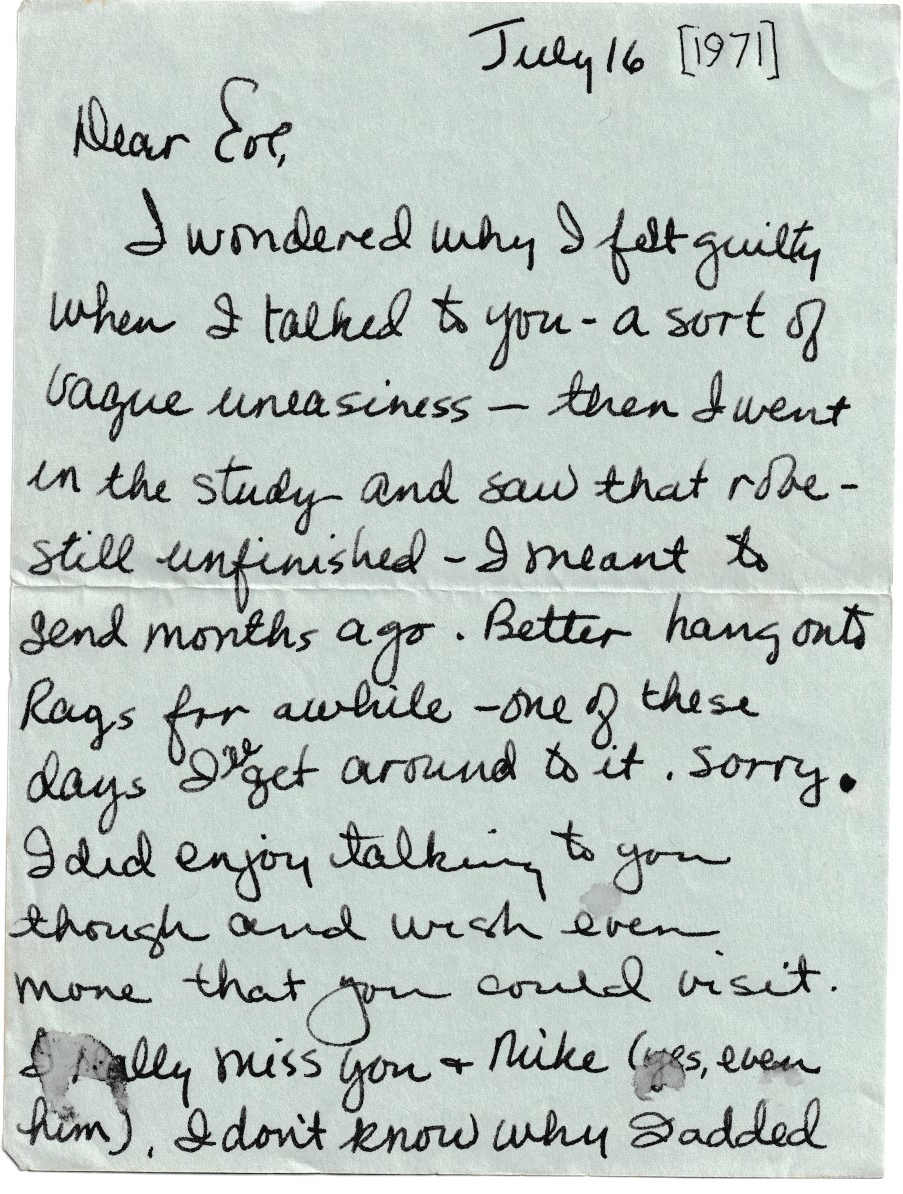 July 16 [1971]
Dear Eve,
I wondered why I felt guilty
when I talked to you - a sort of
vague uneasiness — then I went
in the study and saw that robe -
still unfinished - I meant to
send months ago. Better hang onto
Rags for awhile - one of these
days I'll get around to it. Sorry.
I did enjoy talking to you
though and wish even
more that you could visit.
I really miss you + Mike (yes, even
him). I don't know why I added